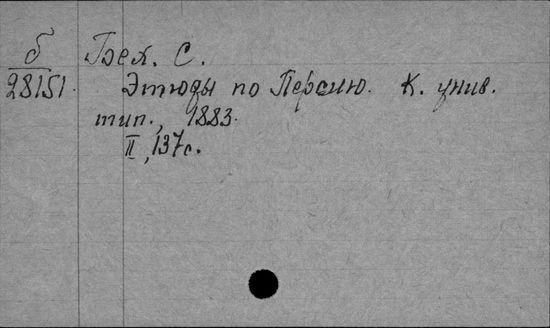 б
28151.
Бех. С.
Этюды по Персию. К. унив.
тип., 1883.
II, 137 с.